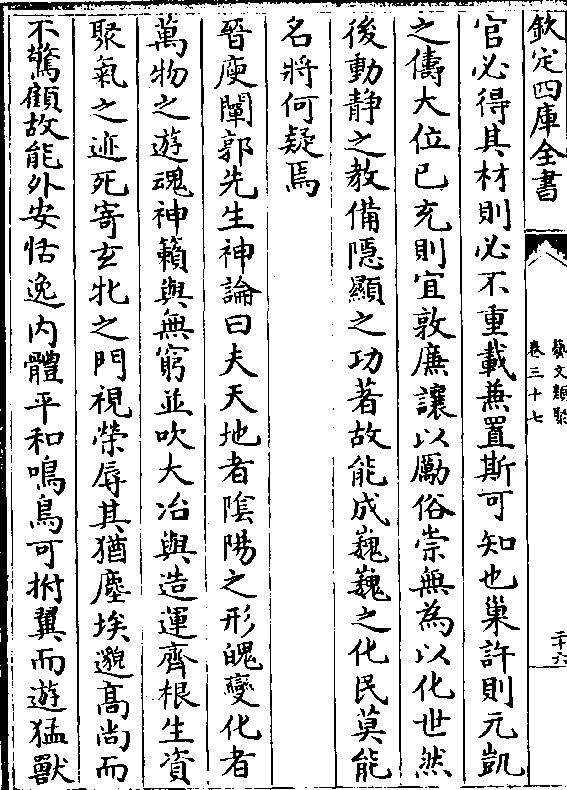 欽定四庫全書
藝文類聚
卷三十七
二十六
官必得其材則必不重載兼置斯可知也巢許則元凱
之儔大位已充則宜敦廉讓以勵俗崇無為以化世然
後動静之教備隱顯之功著故能成巍巍之化民莫能
名將何疑焉
晉庾闡郭先生神論曰夫天地者隂陽之形魄變化者
萬物之遊魂神籟與無窮並吹大冶與造運齊根生資
聚氣之迹死寄玄牝之門視榮辱其猶塵埃邈髙尚而
不驚顧故能外安恬逸内體平和鳴鳥可拊翼而遊猛獸